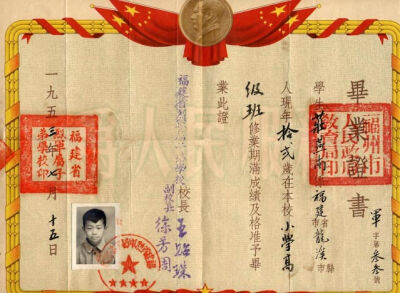 畢業證書
軍字第叁叁號
學生 福建省龍溪縣市
人現年拾弍歲在本校小學高
級班修業期滿成績及格准予畢
業此證
校長王
副校長徐芳周
一九五三年七月十五日
福州市人民政府教育局印
福建省烈軍屬子弟學校印